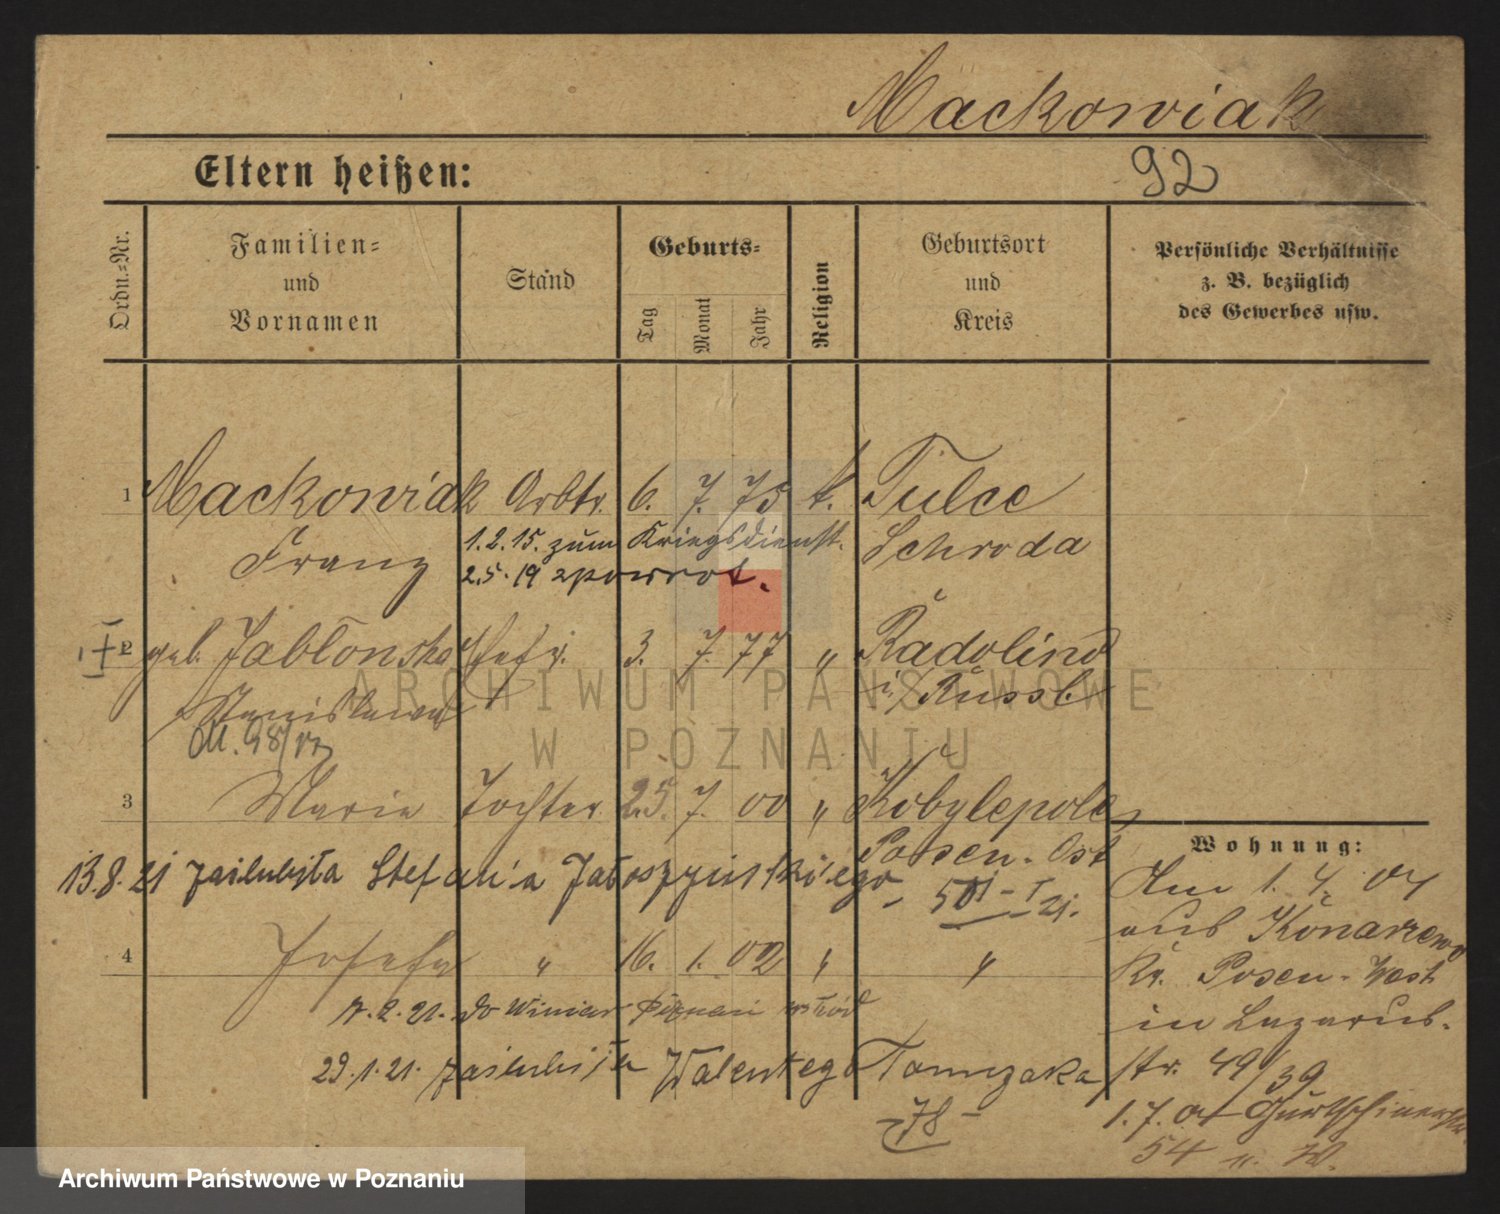 Mackowiak
Eltern heißen:
92
Ordn.-Nr.
Familien-
und
Vornamen
Stand
Geburts-
Tag
Monat
Jahr
Religion
Geburtsort
und
Kreis
Persönliche Verhältnisse
z. B. bezüglich
des Gewerbes usw.
1 Mackowiak Arbtr. 6. 7. 75 k. Tulce
Franz Schroda
1.2.15. zum Kriegsdienst.
2.5.19 zpowrot.
2 geb. Jablonska Ehefr. 3. 7. 77 " Radolino
Stanislawa i/ Russl.
3 Marie Tochter 25. 7. 00 " Kobylepole
Posen-Ost
13.8.21 zaślubiła Stefana
4 Josefa " 16. 1. 02 " "
29.1.21. zaślubiła Walentego Tomczaka
78
Wohnung:
Am 1.4.04
aus Konarzewo
Kr. Posen-West
in Lazarus-
str. 49/39
1.7.04 Gurtschinerstr.
54 n. W.
ARCHIWUM PAŃSTWOWE
W POZNANIU
Archiwum Państwowe w Poznaniu